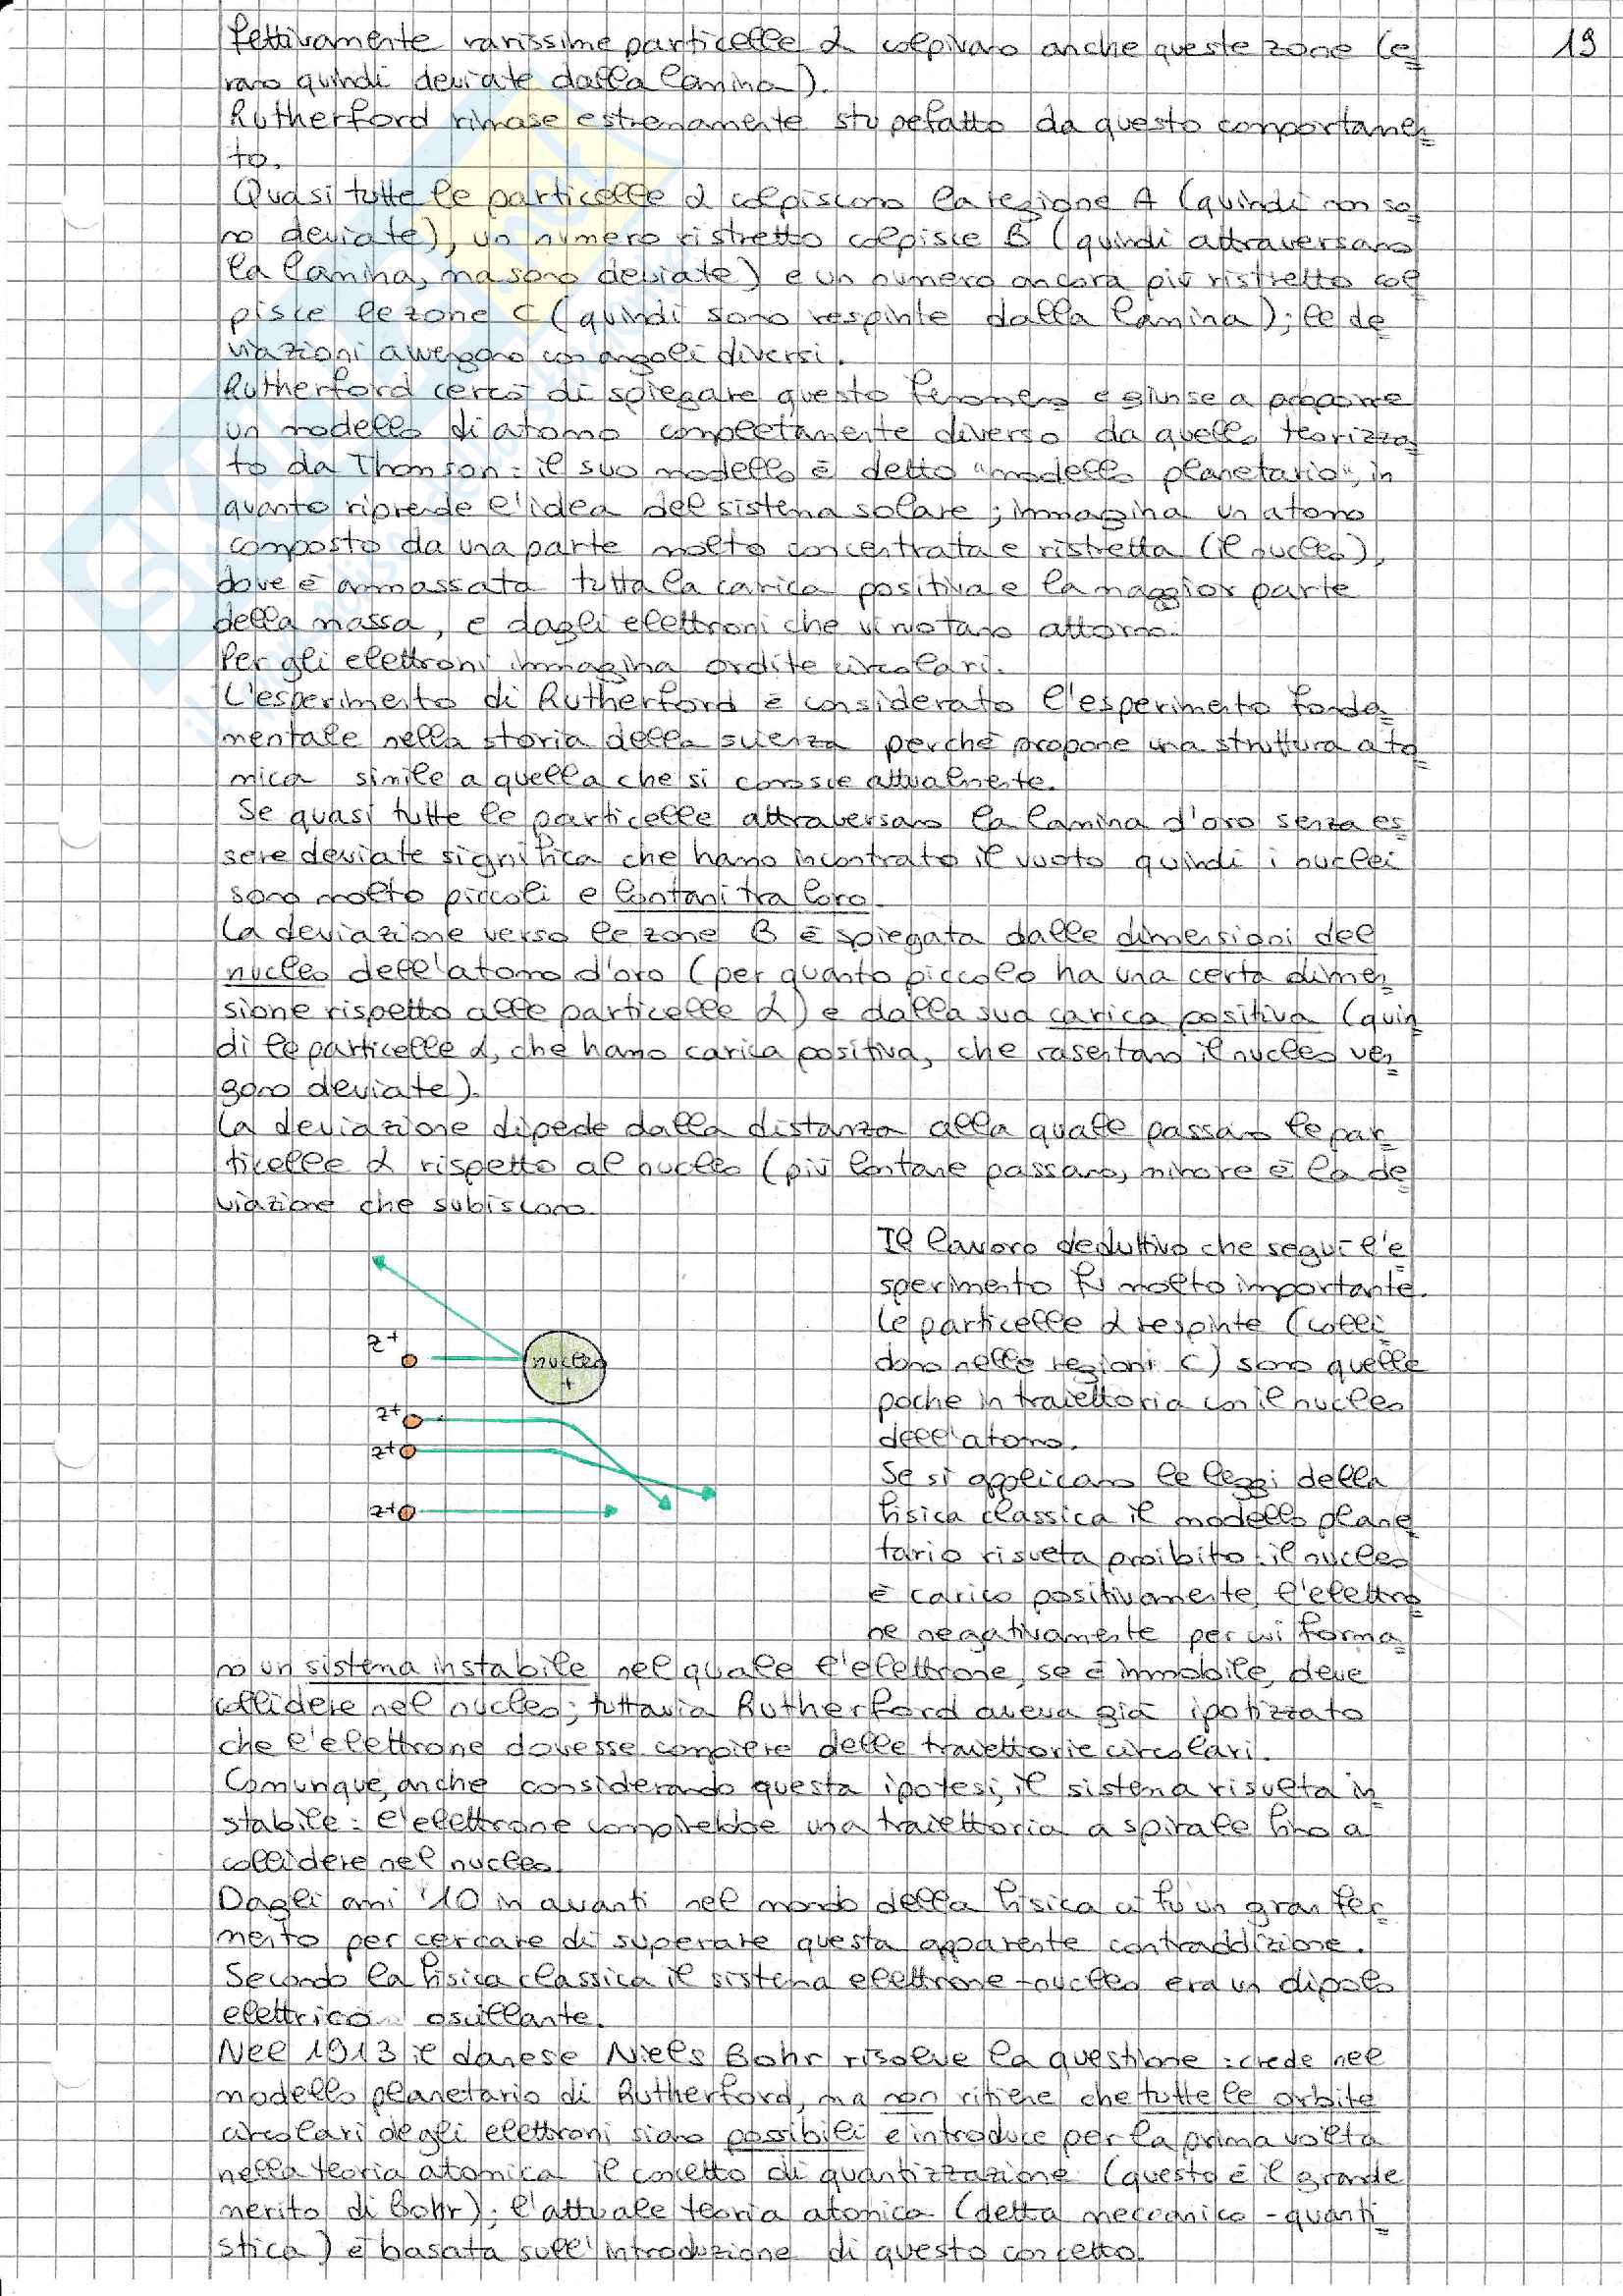 fettivamente rarissime particelle α colpivano anche queste zone (e 19
rano quindi deviate dalla lamina).
Rutherford rimase estremamente stupefatto da questo comportamen
to.
Quasi tutte le particelle α colpiscono la regione A (quindi non so
no deviate), un numero ristretto colpisce B (quindi attraversano
la lamina, ma sono deviate) e un numero ancora più ristretto col
pisce le zone C (quindi sono respinte dalla lamina); le de
viazioni avvengono con angoli diversi.
Rutherford cercò di spiegare questo fenomeno e giunse a proporre
un modello di atomo completamente diverso da quello teorizza
to da Thomson: il suo modello è detto "modello planetario", in
quanto riprende l'idea del sistema solare; immagina un atomo
composto da una parte molto concentrata e ristretta (il nucleo),
dove è ammassata tutta la carica positiva e la maggior parte
della massa, e dagli elettroni che vi ruotano attorno.
Per gli elettroni immagina ordite circolari.
L'esperimento di Rutherford è considerato l'esperimento fonda
mentale nella storia della scienza perché propone una struttura ato
mica simile a quella che si conosce attualmente.
Se quasi tutte le particelle attraversano la lamina d'oro senza es
sere deviate significa che hanno incontrato il vuoto quindi i nuclei
sono molto piccoli e lontani tra loro.
La deviazione verso le zone B è spiegata dalle dimensioni del
nucleo dell'atomo d'oro (per quanto piccolo ha una certa dimen
sione rispetto alle particelle α) e dalla sua carica positiva (quin
di le particelle α, che hanno carica positiva, che rasentano il nucleo ven
gono deviate).
La deviazione dipede dalla distanza alla quale passano le par
ticelle α rispetto al nucleo (più lontane passano, minore è la de
viazione che subiscono.
Il lavoro deduttivo che seguì l'e
sperimento fu molto importante.
Le particelle α respinte (colli
dono nelle regioni C) sono quelle
poche in traiettoria con il nucleo
dell'atomo.
Se si applicano le leggi della
fisica classica il modello plane
tario risulta proibito: il nucleo
è carico positivamente, l'elettro
ne negativamente per cui forma
2+
nucleo
+
2+
2+
2+
no un sistema instabile nel quale l'elettrone, se è immobile, deve
collidere nel nucleo; tuttavia Rutherford aveva già ipotizzato
che l'elettrone dovesse compiere delle traiettorie circolari.
Comunque, anche considerando questa ipotesi, il sistema risulta in
stabile: l'elettrone compirebbe una traiettoria a spirale fino a
collidere nel nucleo.
Dagli anni '10 in avanti nel mondo della fisica ci fu un gran fer
mento per cercare di superare questa apparente contraddizione.
Secondo la fisica classica il sistema elettrone-nucleo era un dipolo
elettrico oscillante.
Nel 1913 il danese Niels Bohr risolve la questione: crede nel
modello planetario di Rutherford, ma non ritiene che tutte le orbite
circolari degli elettroni siano possibili e introduce per la prima volta
nella teoria atomica il concetto di quantizzazione (questo è il grande
merito di Bohr); l'attuale teoria atomica (detta meccanico-quanti
stica) è basata sull'introduzione di questo concetto.